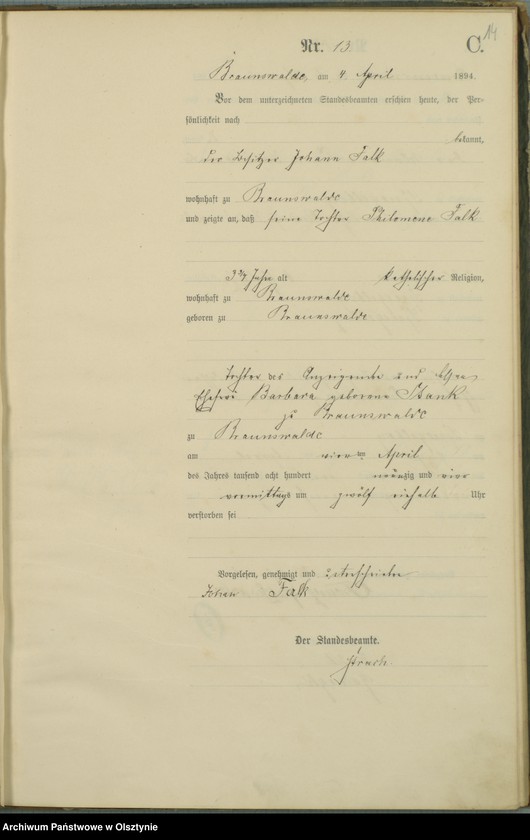 14
Nr. 13. C.
Braunswalde, am 4. April 1894.
Vor dem unterzeichneten Standesbeamten erschien heute, der Per-
sönlichkeit nach
bekannt,
der Besitzer Johann Falk
wohnhaft zu Braunswalde
und zeigte an, daß seine Tochter Philomene Falk
Jahr alt katholischer Religion,
wohnhaft zu Braunswalde
geboren zu Braunswalde
Tochter des Anzeigende und
Ehefrau Barbara geborene Stank
zu Braunswalde
zu Braunswalde
am vierten April
des Jahres tausend acht hundert neunzig und vier
vormittags um zwölf Uhr
verstorben sei
Vorgelesen, genehmigt und unterschrieben
Johan Falk
Der Standesbeamte.
Archiwum Państwowe w Olsztynie